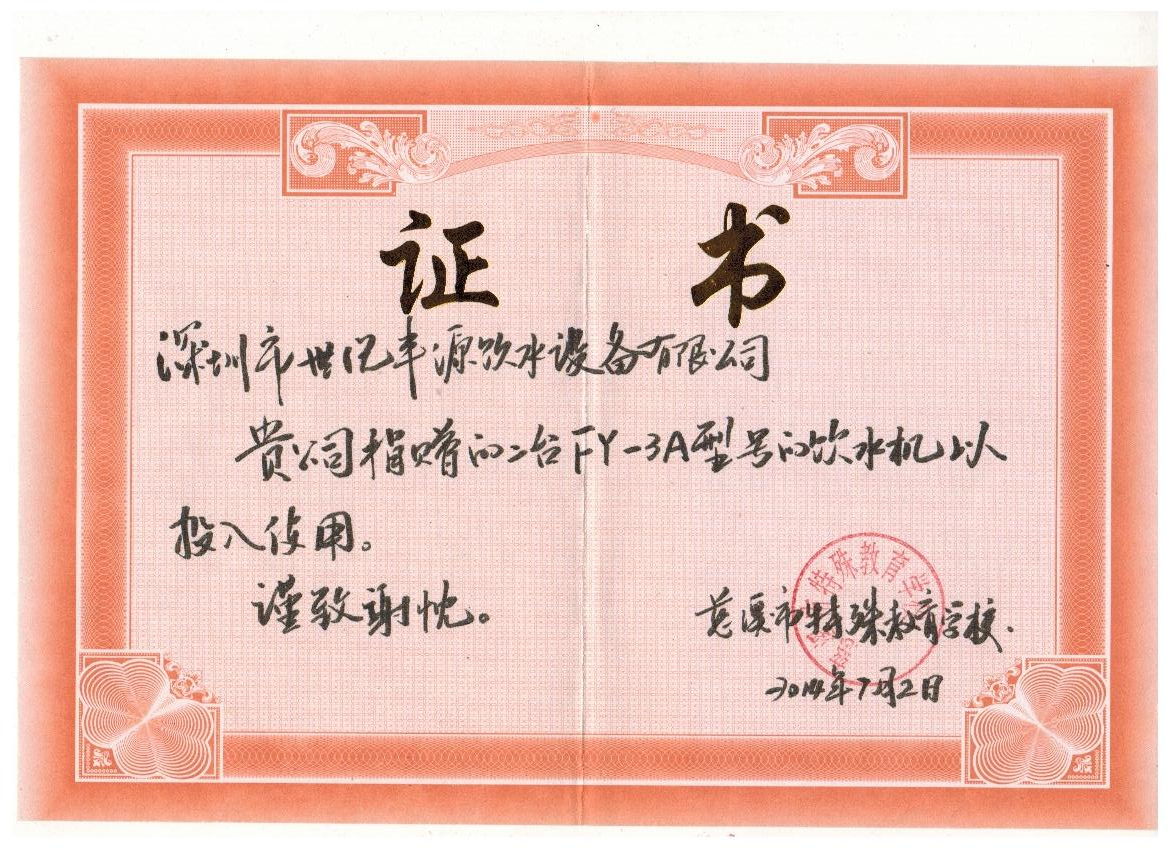 证 书
深圳市世亿丰源饮水设备有限公司
贵公司捐赠的二台FY-3A型号的饮水机以
投入使用。
谨致谢忱。
特殊教育
慈溪市特殊教育学校.
2014年7月2日